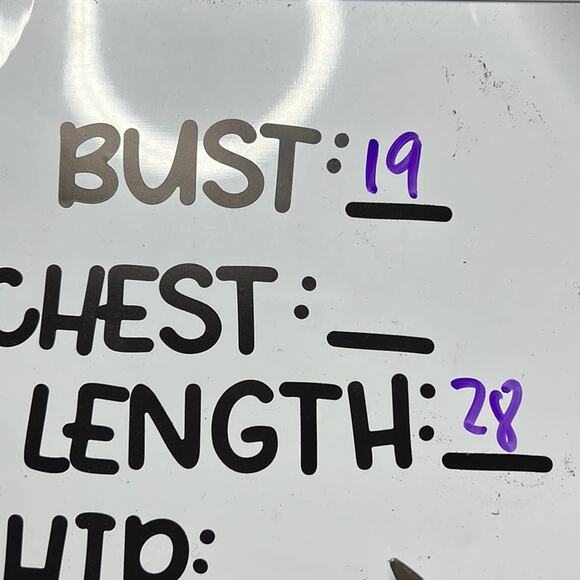 BUST: 19
CHEST: __
LENGTH: 28
HIP: